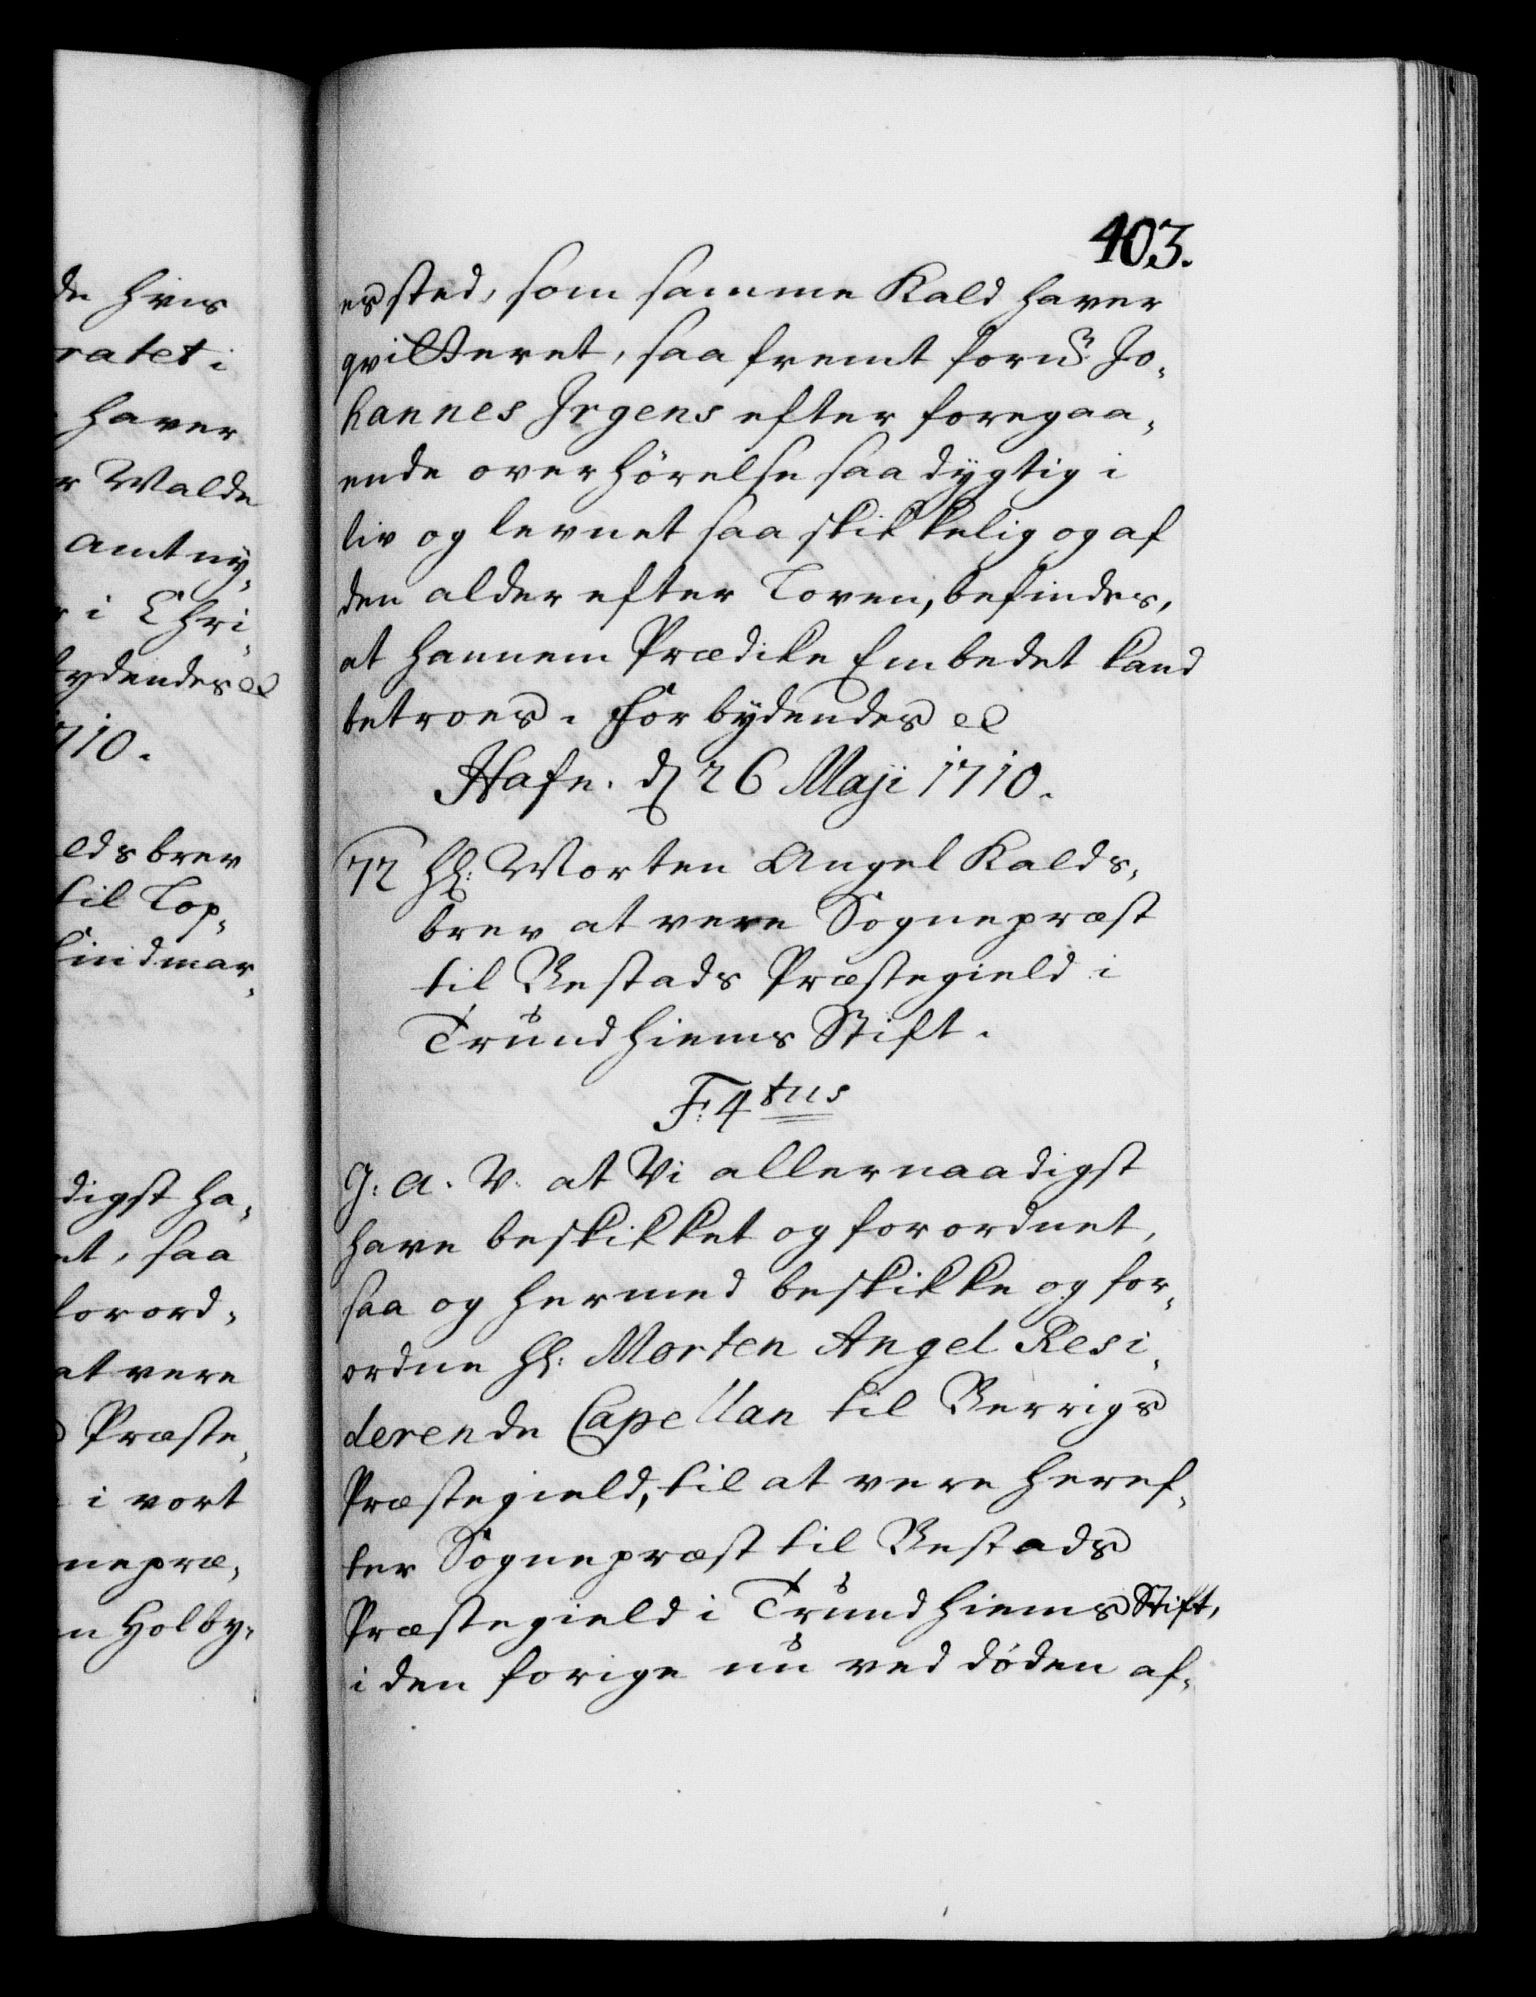 403.
es sted, som samme Kald haver
qvitteret, saa fremt forn: Jo-
hannes Jrgens efter foregaa-
ende overhørelse saa dygtig i
liv og levnet saa skikkelig og af
den alder efter Loven, befindes,
at hannem Prædike Embedet kand
betroes. Forbydendes etc
Hafn. d 26 Maji 1710.
72 Hr: Morten Angel Kalds-
brev at vere Sognepræst
til Bestads Præstegield i
Trundhiems Stift.
F: 4tus
G. A. V. at Vi allernaadigst
have beskikket og forordnet,
saa og hermed beskikke og for-
ordne Hr: Morten Angel Resi-
derende Capellan til Verrigs
Præstegield, til at vere heref-
ter Sognepræst til Bestads
Præstegield i Trundhiems Stift,
i den forige nu ved døden af-
de hvis
ratet i
haver
r Walde
Amt ny-
r i Chri-
bydendes etc
1710.
eds brev
til Lop-
Findmar-
digst ha-
et, saa
forord-
at vere
Præste-
i vort
nepræ-
n Holby-